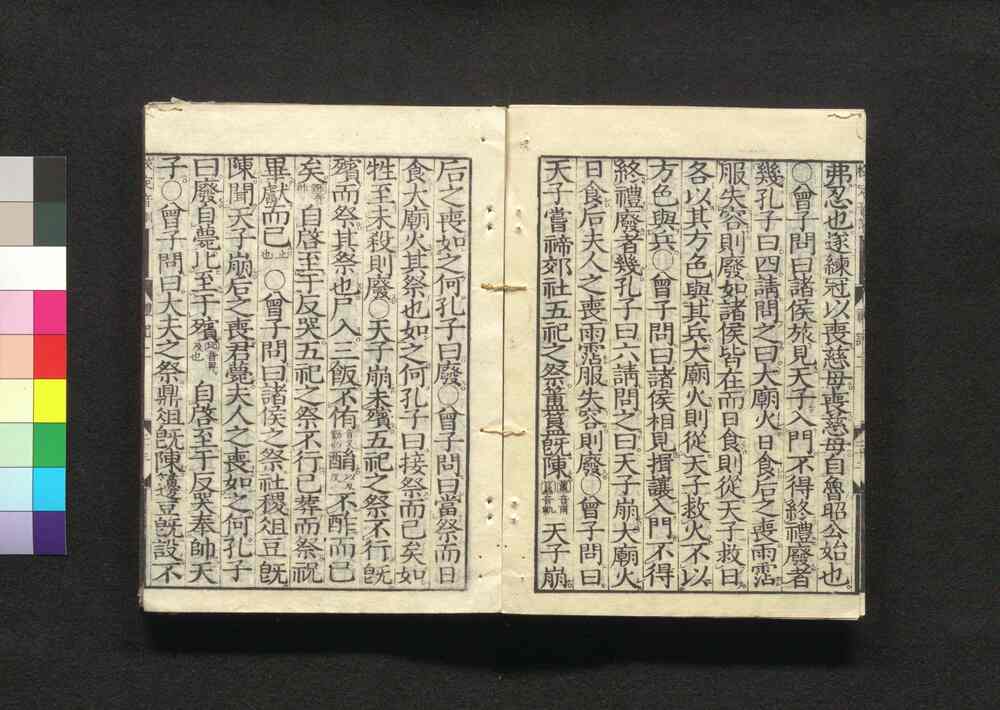 弗忍也遂練冠以喪慈母喪慈母自魯昭公始也
○曾子問曰諸侯旅見天子入門不得終禮廢者
幾孔子曰四請問之曰大廟火日食后之喪雨霑
服失容則廢如諸侯皆在而日食則從天子救日
各以其方色與其兵大廟火則從天子救火不以
方色與兵○曾子問曰諸侯相見揖讓入門不得
終禮廢者幾孔子曰六請問之曰天子崩大廟火
日食后夫人之喪雨霑服失容則廢○曾子問曰
天子嘗禘郊社五祀之祭簠簋既陳簠音甫簋音軌天子崩
后之喪如之何孔子曰廢○曾子問曰當祭而日
食大廟火其祭也如之何孔子曰接祭而已矣如
牲至未殺則廢○天子崩未殯五祀之祭不行既
殯而祭其祭也尸入三飯不侑酳不酢而已
矣自啓至于反哭五祀之祭不行已葬而祭祝
畢獻而已○曾子問曰諸侯之祭社稷俎豆既
陳聞天子崩后之喪君薨夫人之喪如之何孔子
曰廢自薨比至于殯自啓至于反哭奉帥天
子○曾子問曰大夫之祭鼎俎既陳籩豆既設不